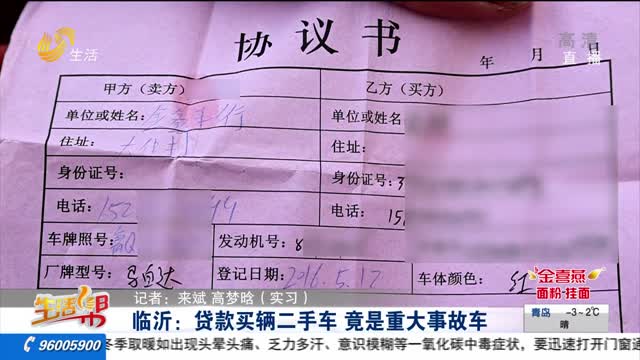 生活
高清
直播
协议书
年 月 日
甲方（卖方）
乙方（买方）
单位或姓名：
单位或姓名：
住址：
住址：
身份证号：
身份证号：3
电话：152 44
电话：15
车牌照号：
发动机号：8
厂牌型号：马自达
登记日期：2016.5.17
车体颜色：红
记者：来斌 高梦晗（实习）
生活帮
临沂：贷款买辆二手车 竟是重大事故车
金喜燕
面粉·挂面
青岛
-3～2℃
晴
96005900
冬季取暖如出现头晕头痛、乏力多汗、意识模糊等一氧化碳中毒症状，要迅速打开门窗